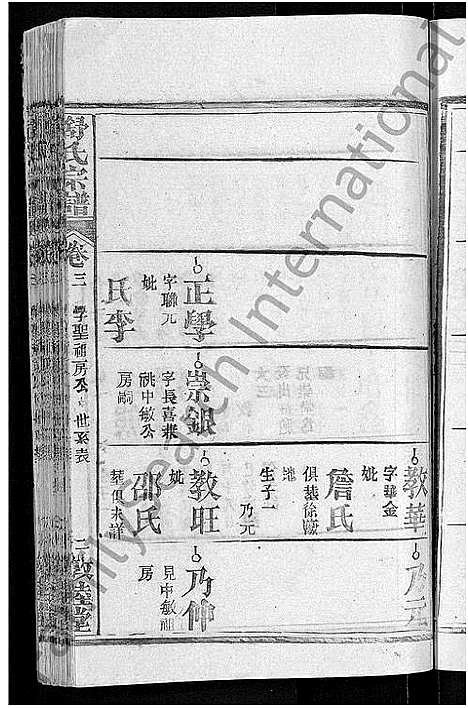 舒氏宗譜
卷三
學聖祖房公中世系表
教華
字華金
妣
詹氏
俱葬徐𡒄
生子一
乃元
乃元
正學
字聯元
妣
李氏
崇銀
字長喜兼
祧中敏公
房嗣
教旺
妣
邵氏
葬俱未詳
乃仲
見中敏祖
房
Search International